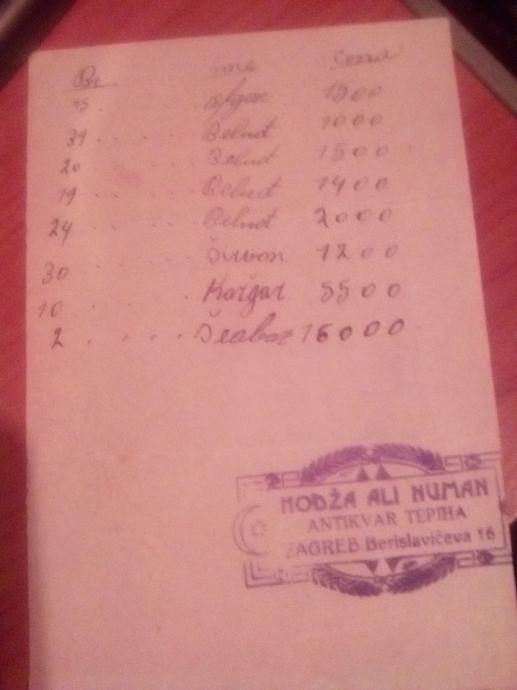 Br. ime Cena
15 . Afgan 1500
39 . . . . . Belud 1000
20 . . . . . Belud 1500
19 . . . . . Belud 1400
24 . . . . . Belud 2000
30 . . . . . Širvan 1200
10 . . . . . Kažgar 5500
2 . . . . 16000
HODŽA ALI NUMAN
ANTIKVAR TEPIHA
ZAGREB Berislavićeva 16